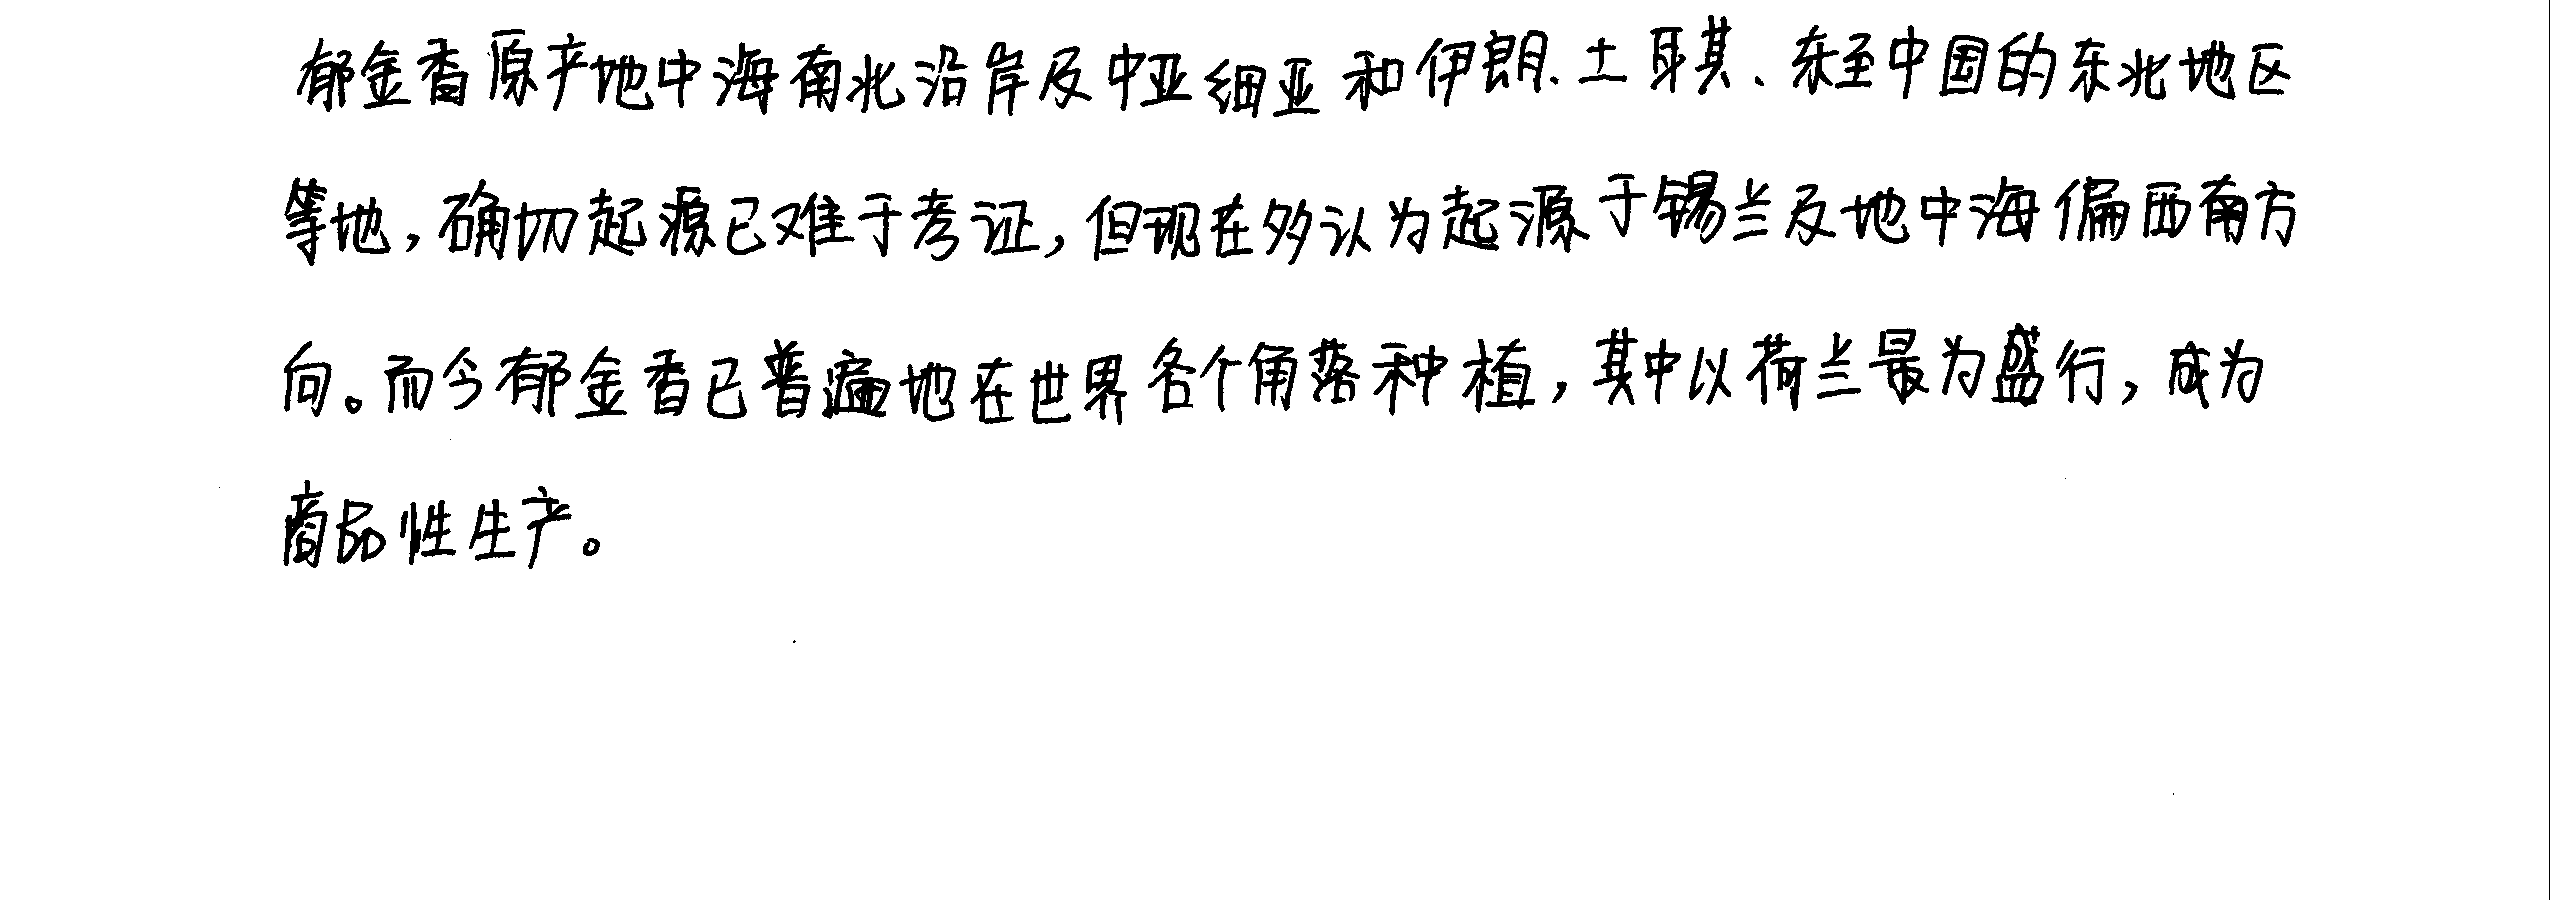 郁金香原产地中海南北沿岸及中亚细亚和伊朗、土耳其、东至中国的东北地区
等地，确切起源已难于考证，但现在多认为起源于锡兰及地中海偏西南方
向。而今郁金香已普遍地在世界各个角落种植，其中以荷兰最为盛行，成为
商品性生产。